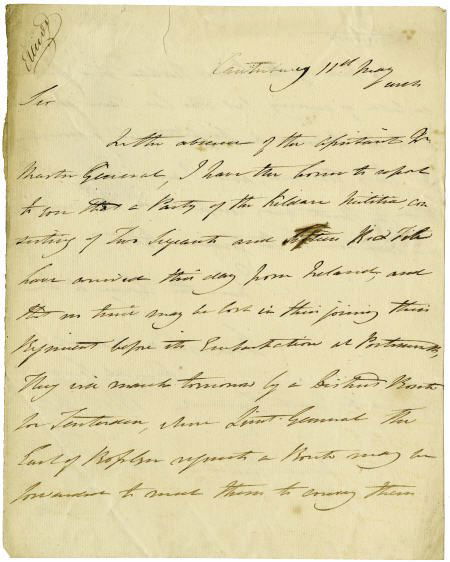 Canterbury 11th May
Sir
In the absence of the Assistant Qr
Master General, I have the honor to report
to you that a Party of the Kildare Militia, con
sisting of Two Serjeants and fifteen R & File
have arrived this day from Ireland, and
that no time may be lost in their joining their
Regiment before its Embarkation at Portsmouth
They will march tomorrow by a District Route
for Tenterden, where Lieut General the
Earl of Rosslyn requests a Route may be
forwarded to meet them to convey them